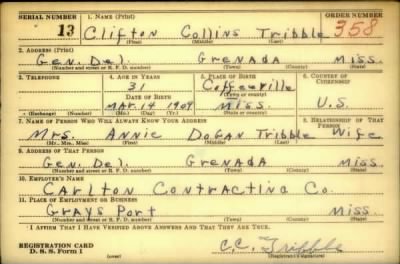 SERIAL NUMBER 1. NAME (Print) ORDER NUMBER
13 Clifton Collins Tribble 358
(First) (Middle) (Last)
2. ADDRESS (Print)
Gen. Del. Grenada Miss.
(Number and street or R. F. D. number) (Town) (County) (State)
3. TELEPHONE 4. AGE IN YEARS 5. PLACE OF BIRTH 6. COUNTRY OF CITIZENSHIP
31 Coffeeville
DATE OF BIRTH (Town or county)
Mar. 14 1909 Miss. U.S.
(Exchange) (Number) (Mo.) (Day) (Yr.) (State or country)
7. NAME OF PERSON WHO WILL ALWAYS KNOW YOUR ADDRESS 8. RELATIONSHIP OF THAT PERSON
Mrs. Annie Dogan Tribble Wife
(Mr., Mrs., Miss) (First) (Middle) (Last)
9. ADDRESS OF THAT PERSON
Gen. Del. Grenada Miss.
(Number and street or R. F. D. number) (Town) (County) (State)
10. EMPLOYER'S NAME
Carlton Contracting Co.
11. PLACE OF EMPLOYMENT OR BUSINESS
Grays Port Miss
(Number and street or R. F. D. number) (Town) (County) (State)
I AFFIRM THAT I HAVE VERIFIED ABOVE ANSWERS AND THAT THEY ARE TRUE.
REGISTRATION CARD C.C. Tribble
D. S. S. Form 1 (over) (Registrant's signature)